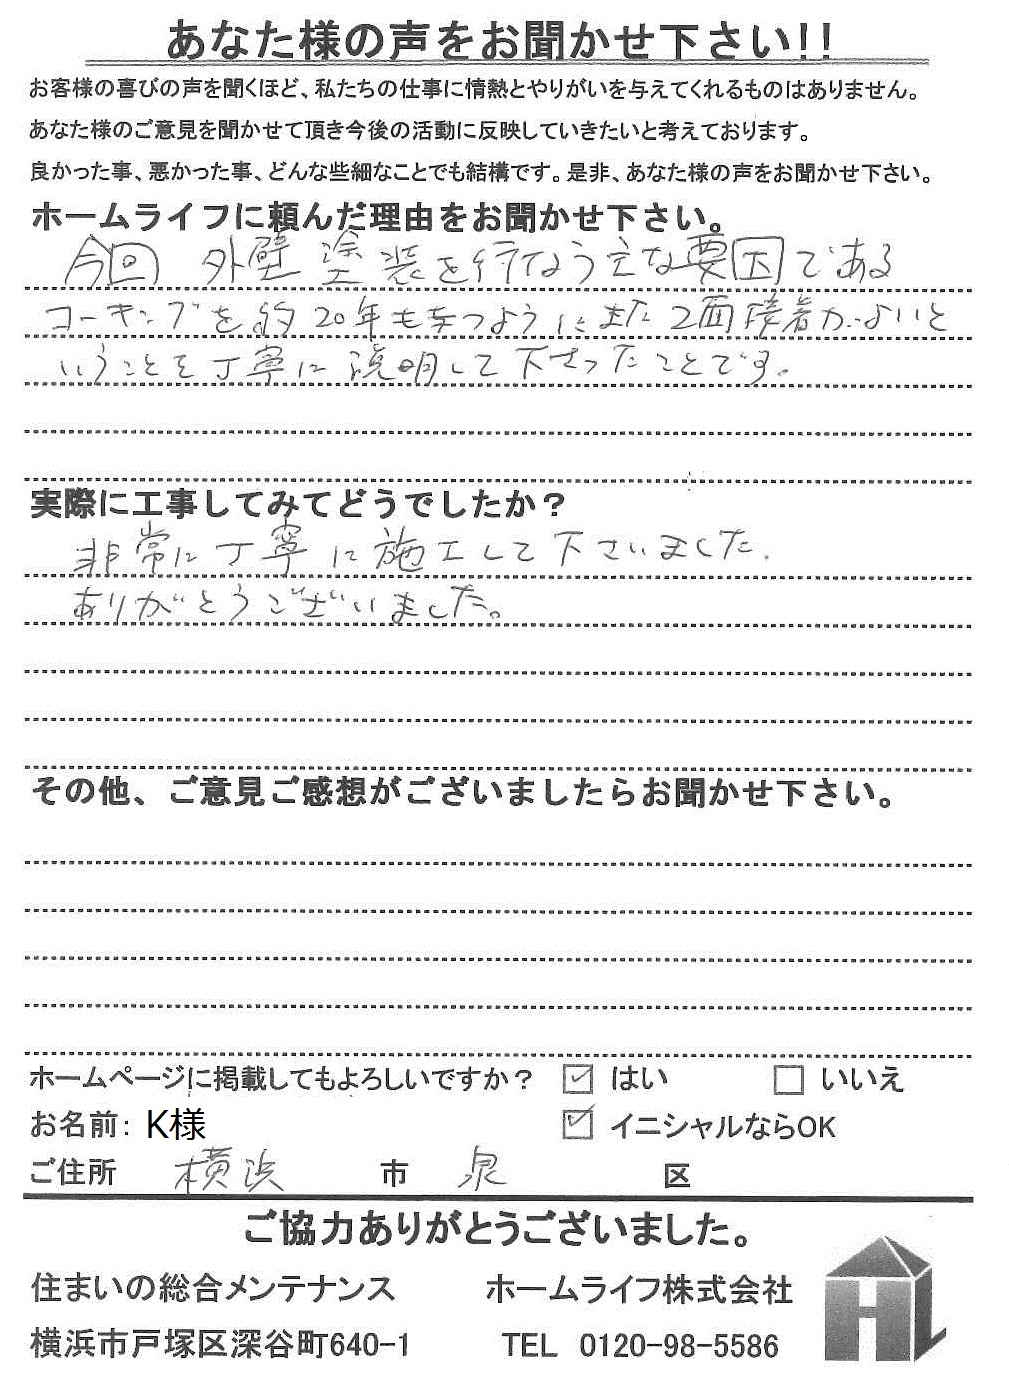 あなた様の声をお聞かせ下さい!!
お客様の喜びの声を聞くほど、私たちの仕事に情熱とやりがいを与えてくれるものはありません。
あなた様のご意見を聞かせて頂き今後の活動に反映していきたいと考えております。
良かった事、悪かった事、どんな些細なことでも結構です。是非、あなた様の声をお聞かせ下さい。
ホームライフに頼んだ理由をお聞かせ下さい。
今回 外壁塗装を行なう主な要因である
コーキングを約20年もつようにまた2面接着がよいと
いうことを丁寧に説明して下さったことです。
実際に工事してみてどうでしたか？
非常に丁寧に施工して下さいました.
ありがとうございました。
その他、ご意見ご感想がございましたらお聞かせ下さい。
ホームページに掲載してもよろしいですか？ ☑ はい □ いいえ
お名前: K様 ☑ イニシャルならOK
ご住所 横浜 市 泉 区
ご協力ありがとうございました。
住まいの総合メンテナンス ホームライフ株式会社
横浜市戸塚区深谷町640-1 TEL 0120-98-5586
HL